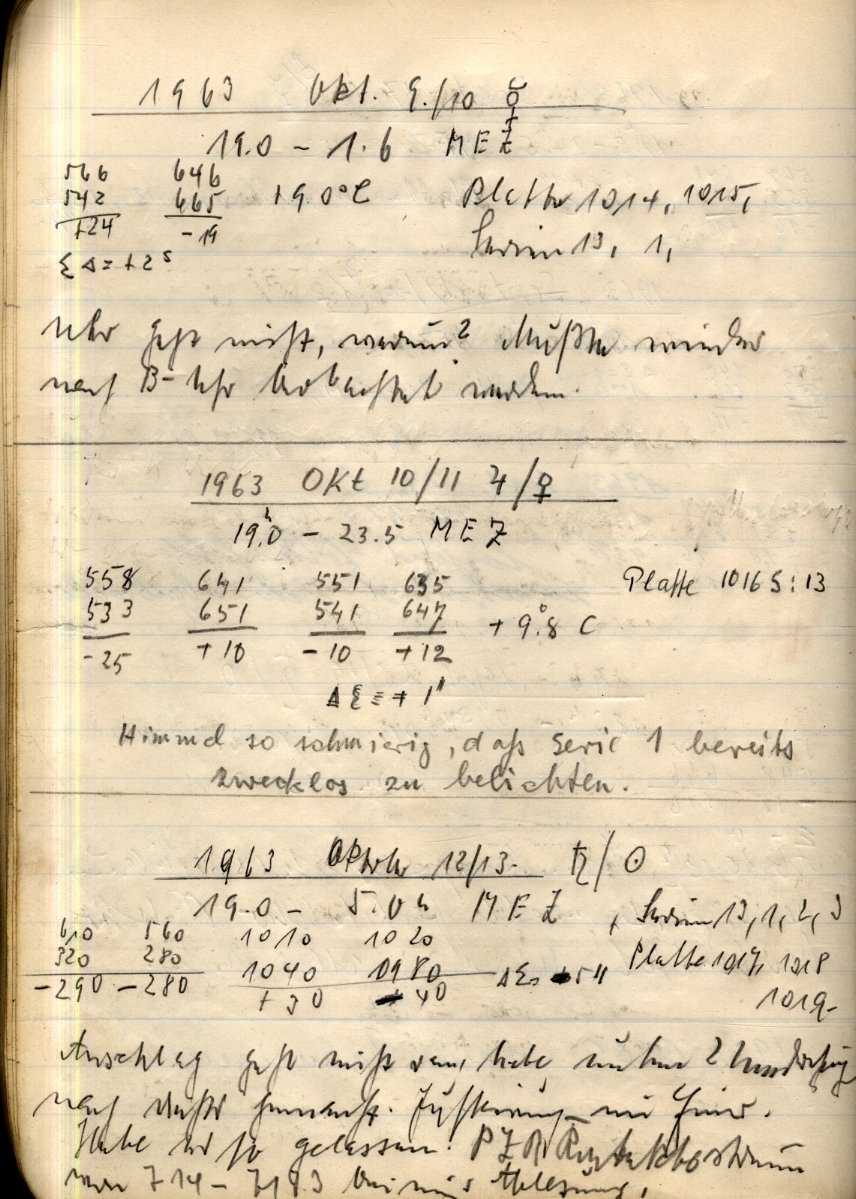 1963 Okt. 9./10 ☿
19.0 - 1.6 MEZ
566 646
542 665 +9.0°C Platte 1014, 1015,
+24 -19 Serien 13, 1,
Σ Δ = +2 s
Uhr geht nicht, warum? Mußte wieder
nach B-Uhr beobachtet werden.
1963 OKt 10/11 ♃/♀
19.h0 - 23.5 MEZ
558 641 551 635 Platte 1016 S: 13
533 651 541 647 + 9.°8 C
-25 +10 -10 +12
ΔΣ = + 1"
Himmel so schmierig, daß Serie 1 bereits
zwecklos zu belichten.
1963 Oktober 12/13. ♄/☉
19.0 - 5.0h MEZ , Serien 13, 1, 2, 3
610 560 1010 1020 Platte 1017, 1018
320 280 1040 0980 1019-
-290 -280 +30 40
Anschlag geht nicht habe 2
nach
Habe so gelassen.
von 714 - Ablesung,